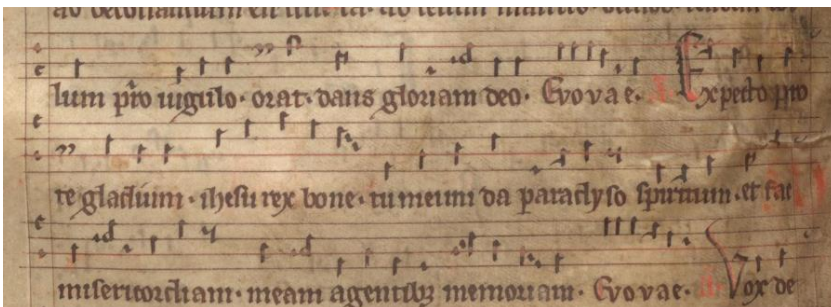 lum p̄ro uigulo · orat · dans gloriam deo · Evovae · Expecto p̄ro
te gladium · ihesu rex bone · tu meum da paradyso spiritum · et fac
misericordiam · meam agentibꝫ memoriam · Evovae · Vox de